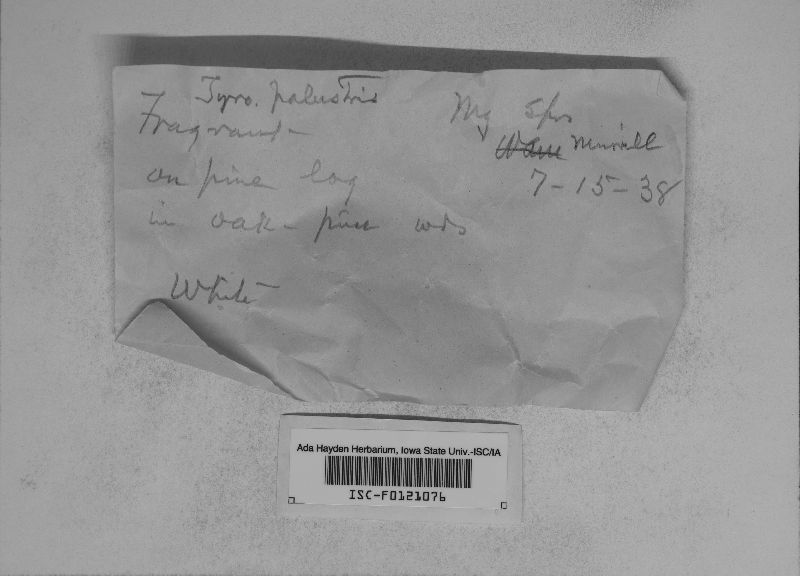 Tyro. palustris
Fragrant
My Sprs
Murrill
on pine log
7-15-38
in oak-pine wds
White
Ada Hayden Herbarium, Iowa State Univ.-ISC/IA
ISC-F0121076